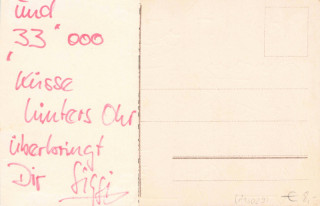 und
33 000
Küsse
hinters Ohr
überbringt
Dir Siggi